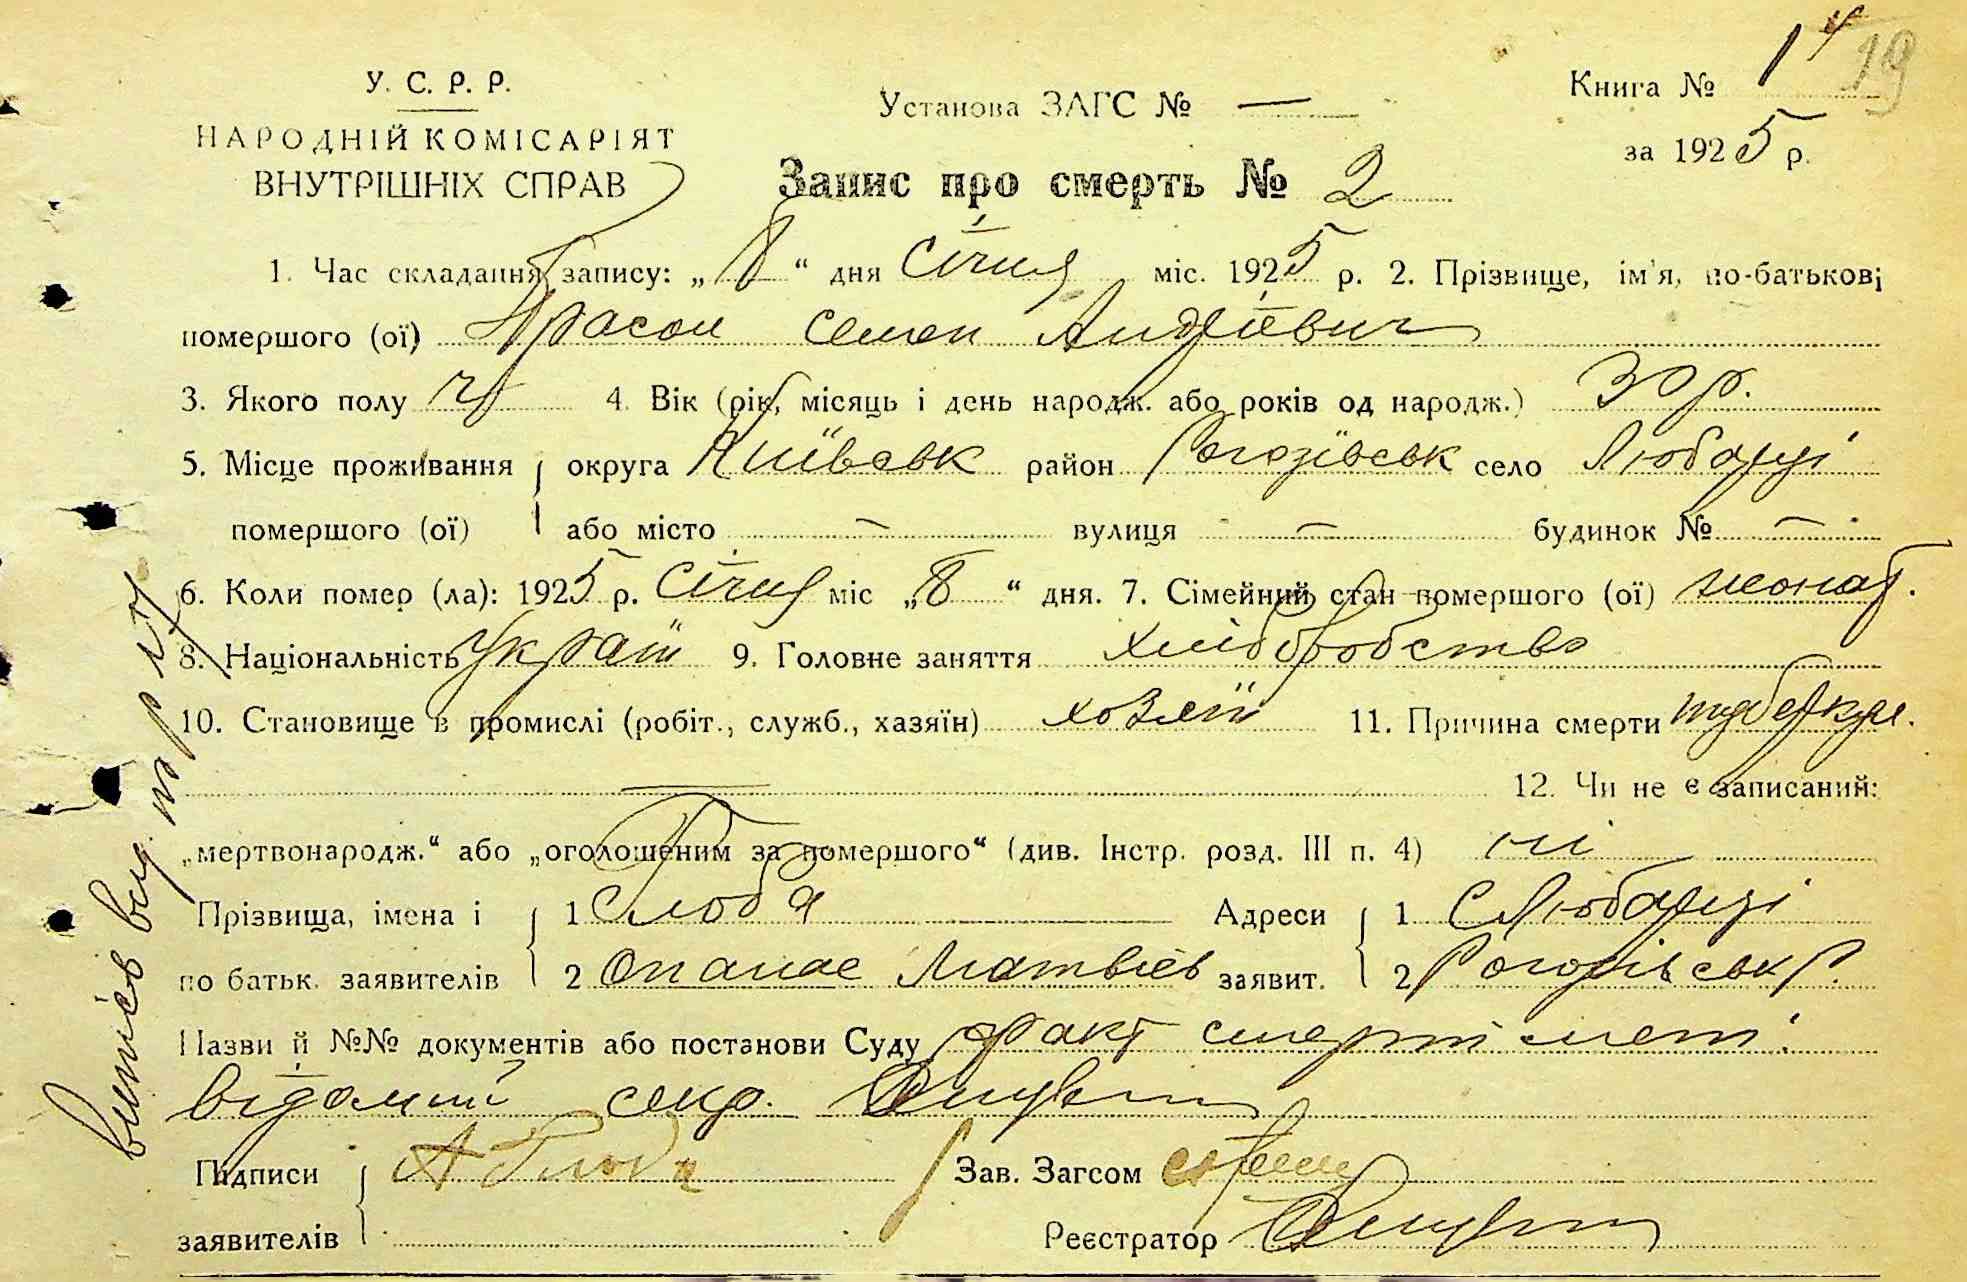 У. С. Р. Р.
НАРОДНІЙ КОМІСАРІЯТ
ВНУТРІШНІХ СПРАВ
Установа ЗАГС № —
Книга № 1
19
за 1925 р.
Запис про смерть № 2
1. Час складання запису: „8“ дня Січня міс. 1925 р. 2. Прізвище, ім'я, по-батькові
помершого (ої) Прасол Семен Андрієвич
3. Якого полу ч 4. Вік (рік, місяць і день народж. або років од народж.) 30 р.
5. Місце проживання округа Київськ район Рогозівськ село Любарці
помершого (ої) або місто — вулиця — будинок № —
6. Коли помер (ла): 1925 р. Січня міс „8“ дня. 7. Сімейний стан помершого (ої)
8. Національність Україн 9. Головне заняття хлібробство
10. Становище в промислі (робіт., служб., хазяїн) хозяїн 11. Причина смерти туберкул.
12. Чи не є записаний:
„мертвонародж.“ або „оголошеним за помершого“ (див. Інстр. розд. III п. 4) ні
Прізвища, імена і 1 Глоба Адреси 1 С Любарці
по батьк. заявителів 2 Опанас Матвієв заявит. 2 Рогозівськ Р.
Назви й №№ документів або постанови Суду факт смерти мені
відомий секр.
Підписи А Глоба Зав. Загсом
заявителів Реєстратор